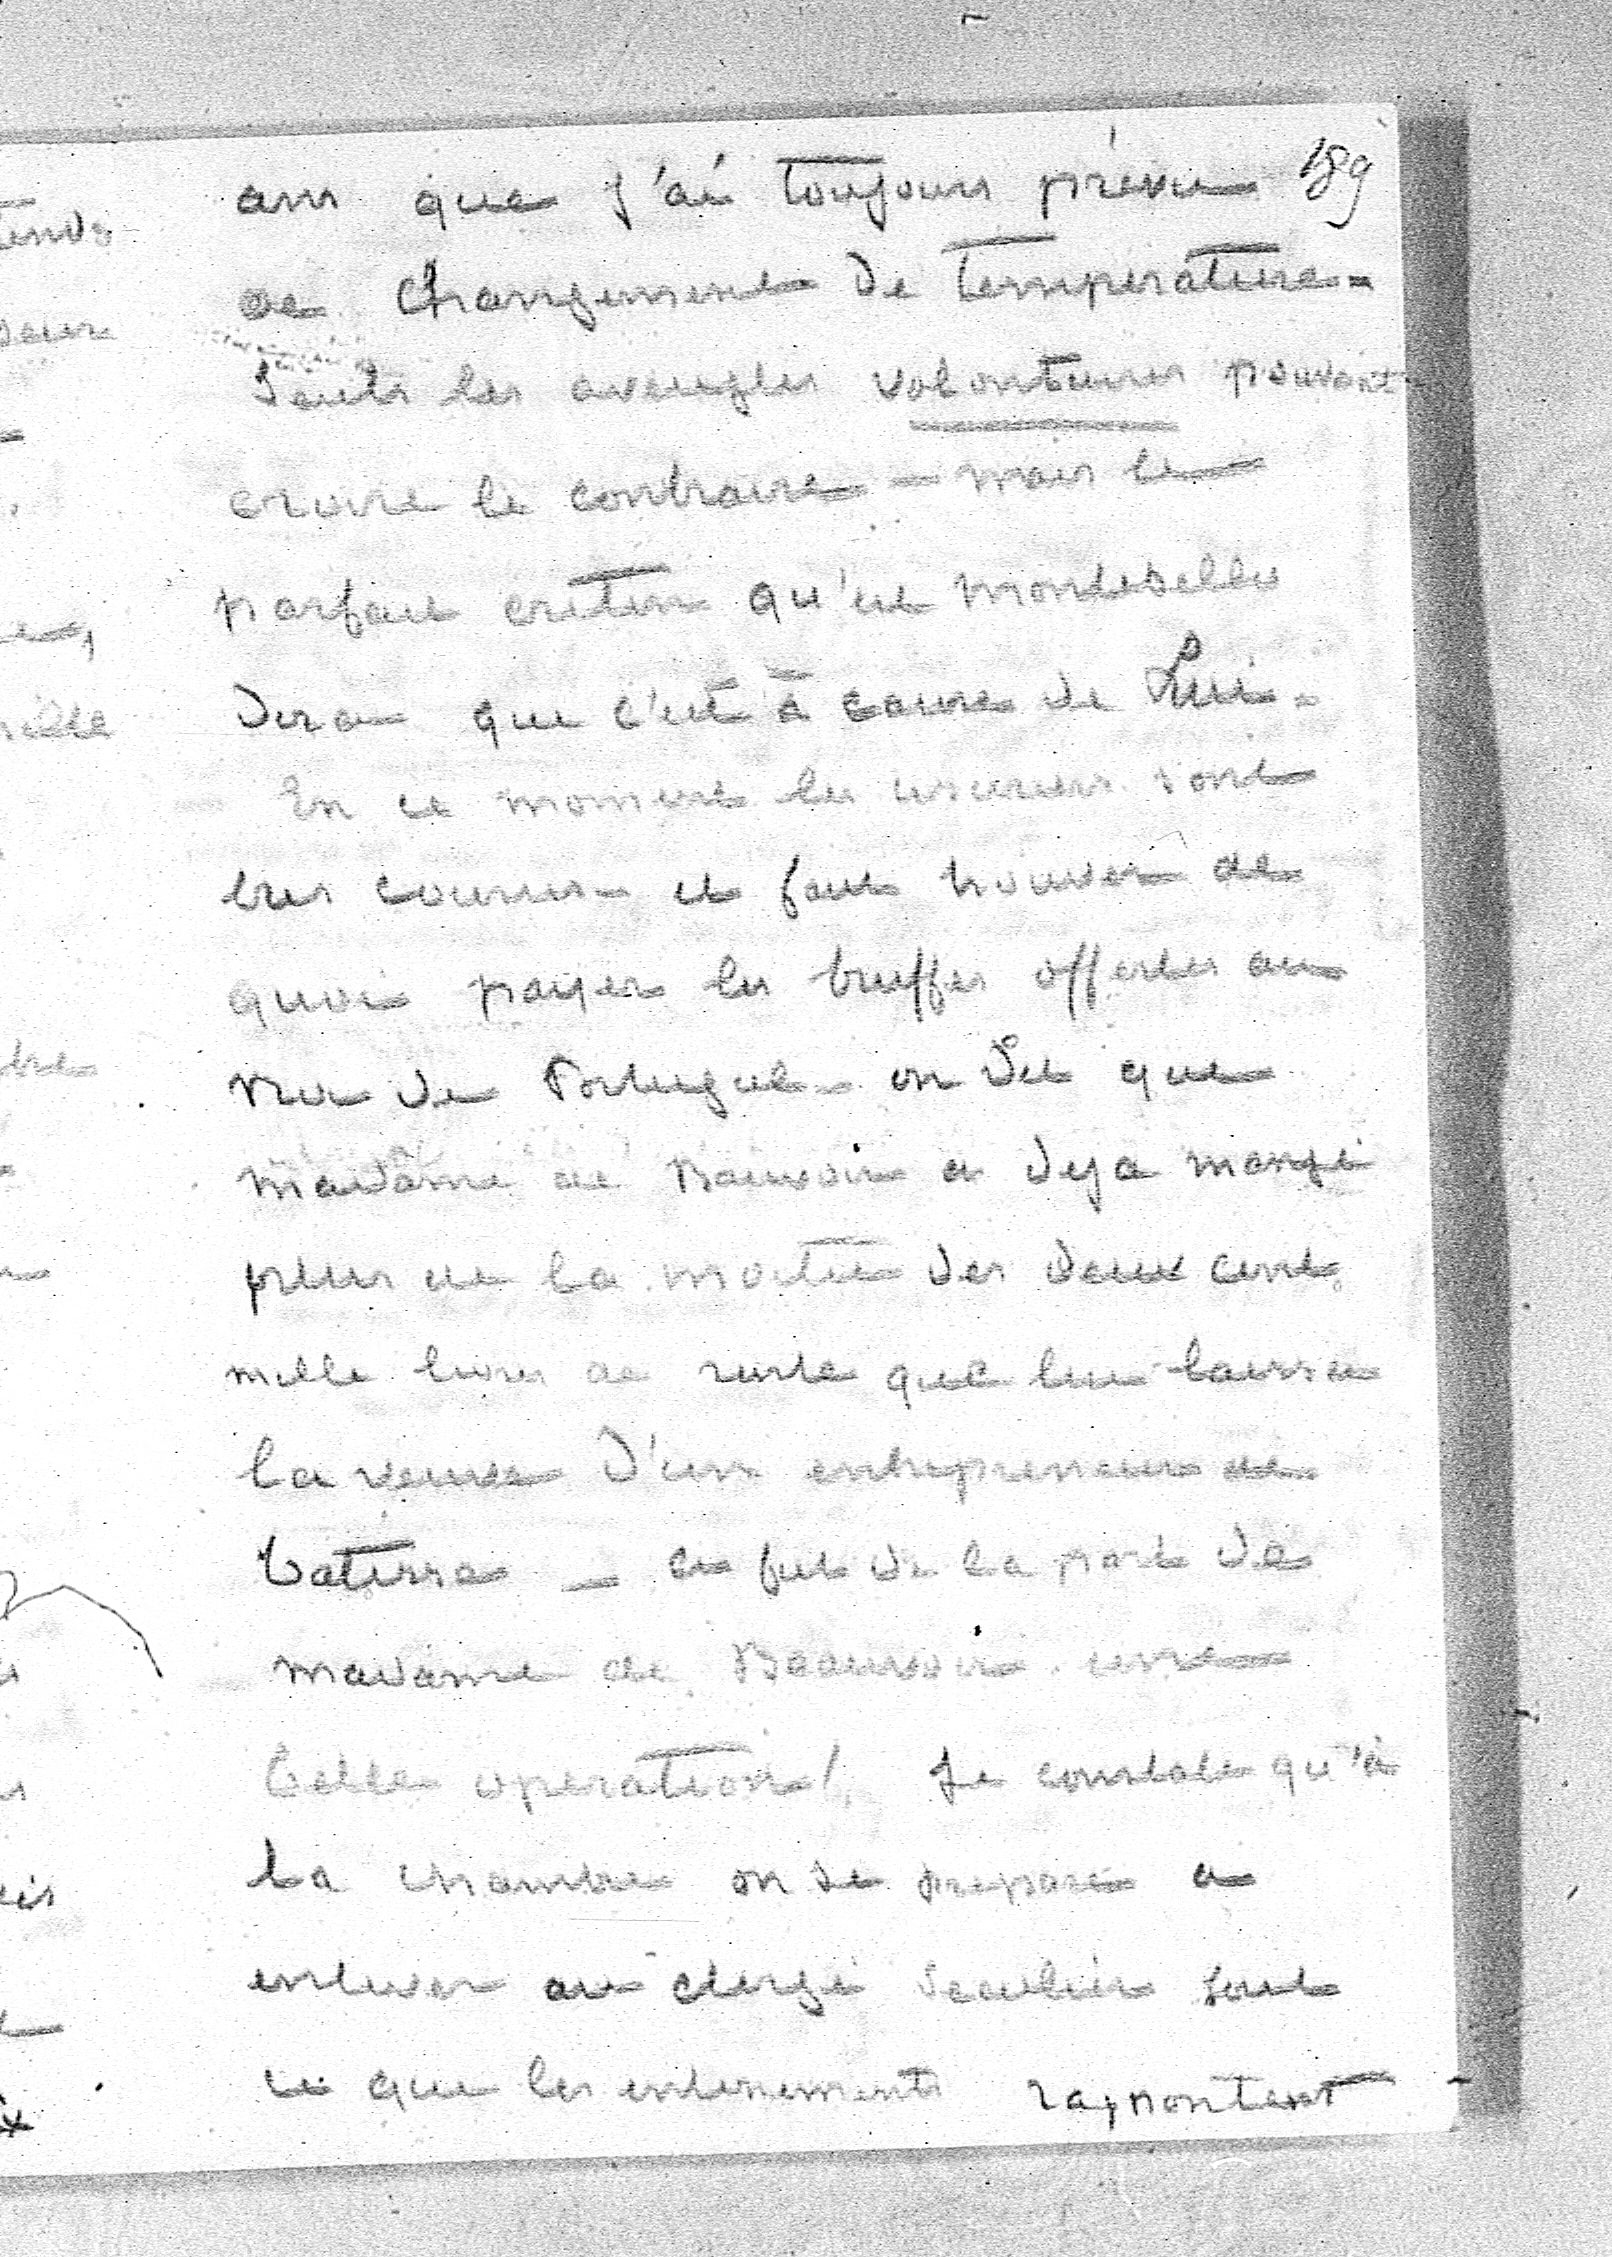 189
ans que j'ai toujours prévu
ce changement de température.
Seuls les aveugles volontaires peuvent
croire le contraire – mais le
parfait crétin qu'est Montebello
dira que c'est à cause de Lui.
En ce moment les usuriers sont
très courus – il faut trouver de
quoi payer les truffes offertes au
Roi de Portugal – on dit que
Madame de Beauvoir a deja mangé
plus de la moitié des deux cent
mille livres de rente que lui laissa
la veuve d'un entrepreneur de
batisse – ce fut de la part de
madame de Beauvoir une
belle operation! Je constate qu'à
la chambre on se prepare a
enlever au clergé seculier tout
ce que les enterrements rapportent